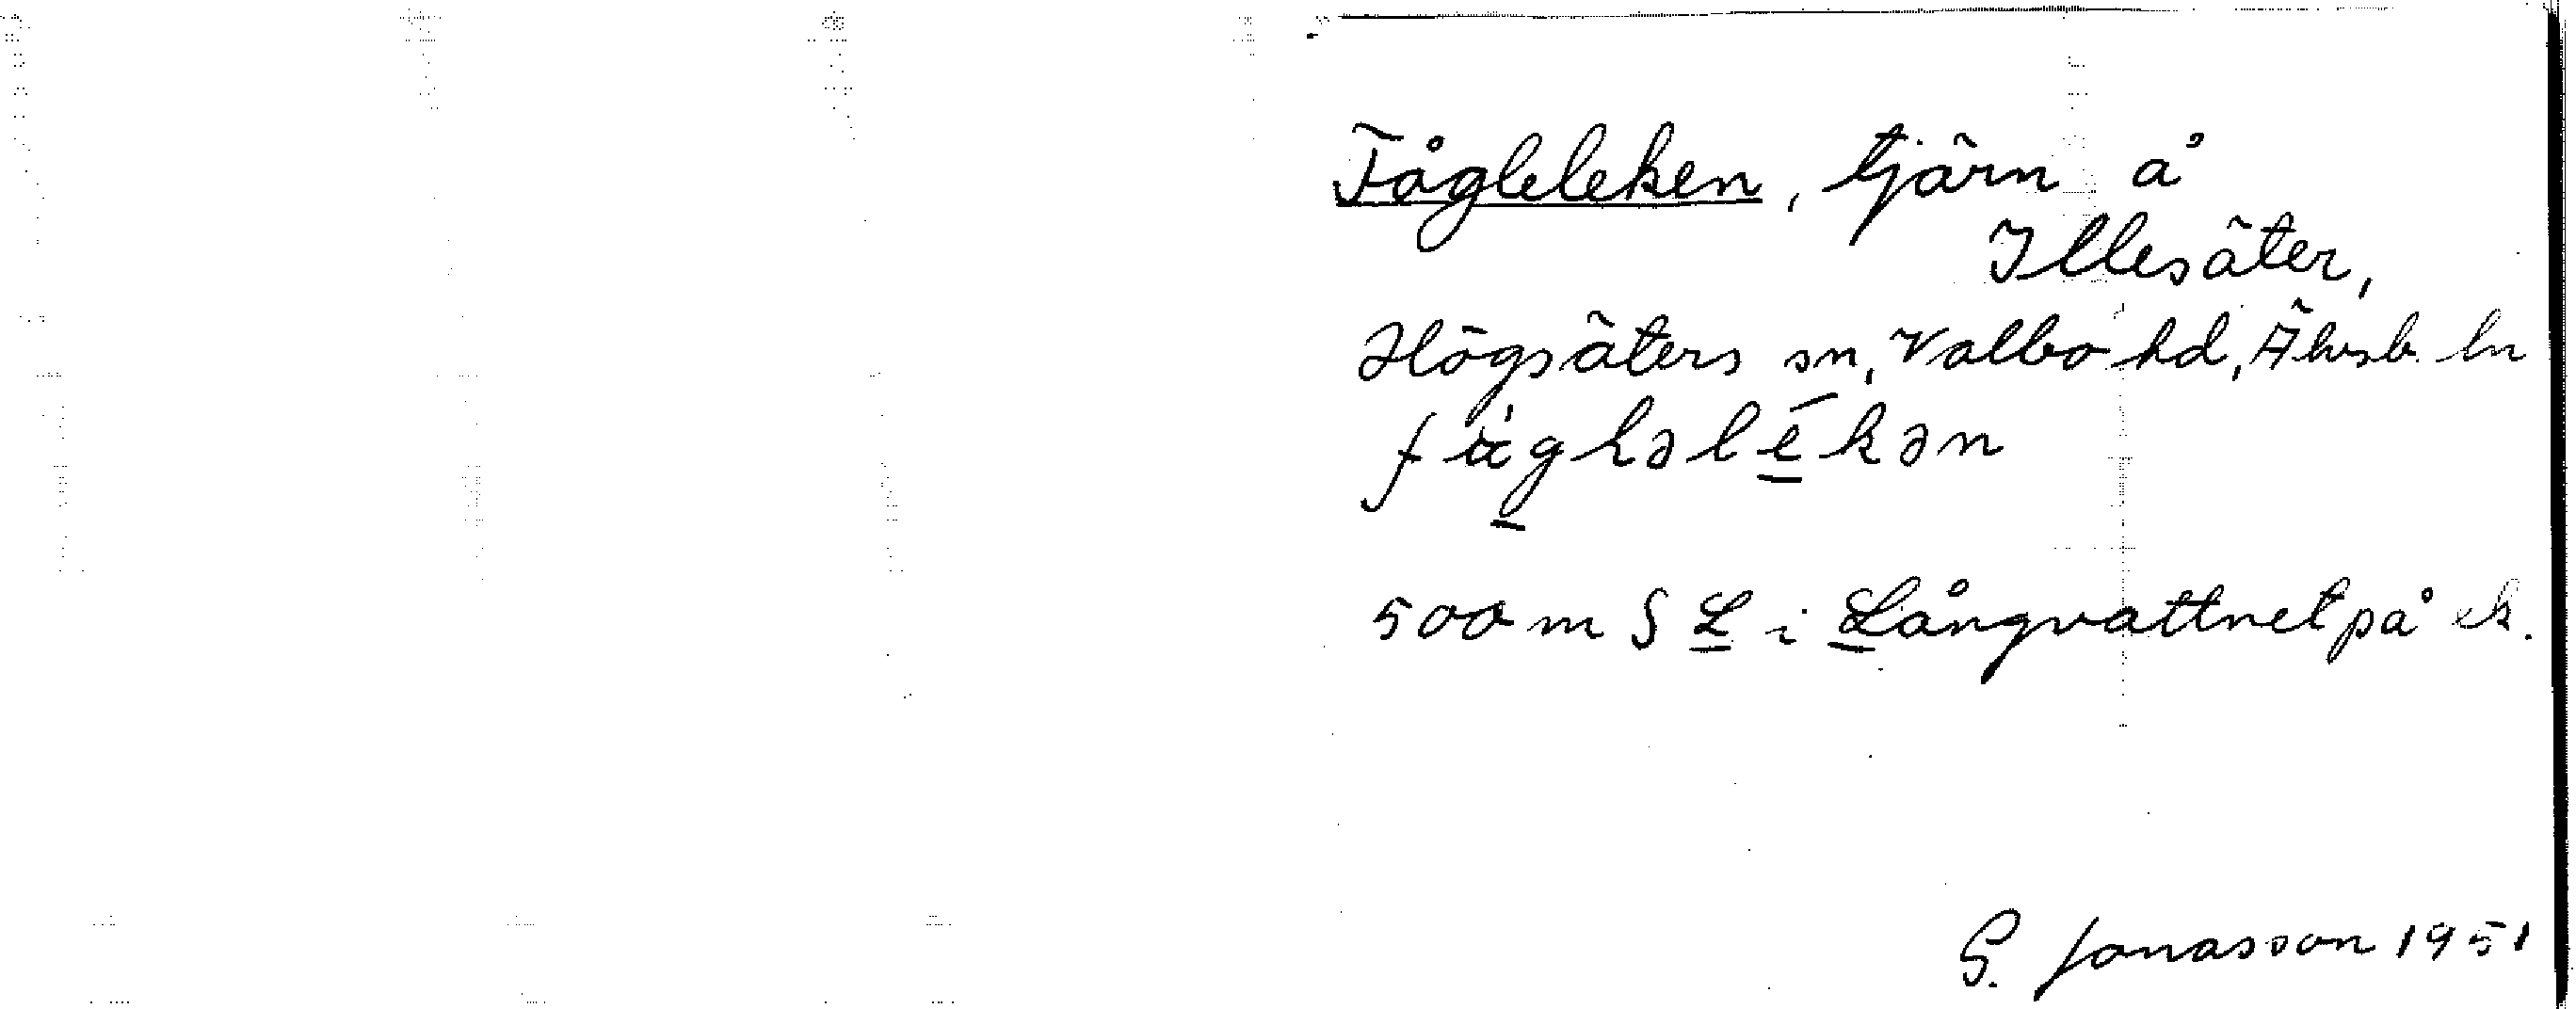 Fågleleken, tjärn å
Illesäter,
Högsäters sn, Valbo hd, Älvsb. ln
500 m S L i Långvattnet på ek.
G. Jonasson 1951